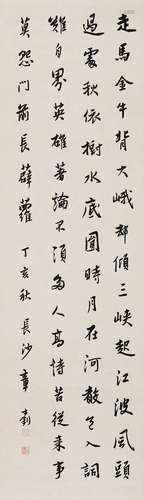 走馬金牛背大峨都傾三峽起江波風頭
過處秋依樹水底圓時月在河教色入詞
難自界英雄著論不須多人高詩苦從來事
莫怨門前長薜蘿 丁亥秋 長沙章士釗